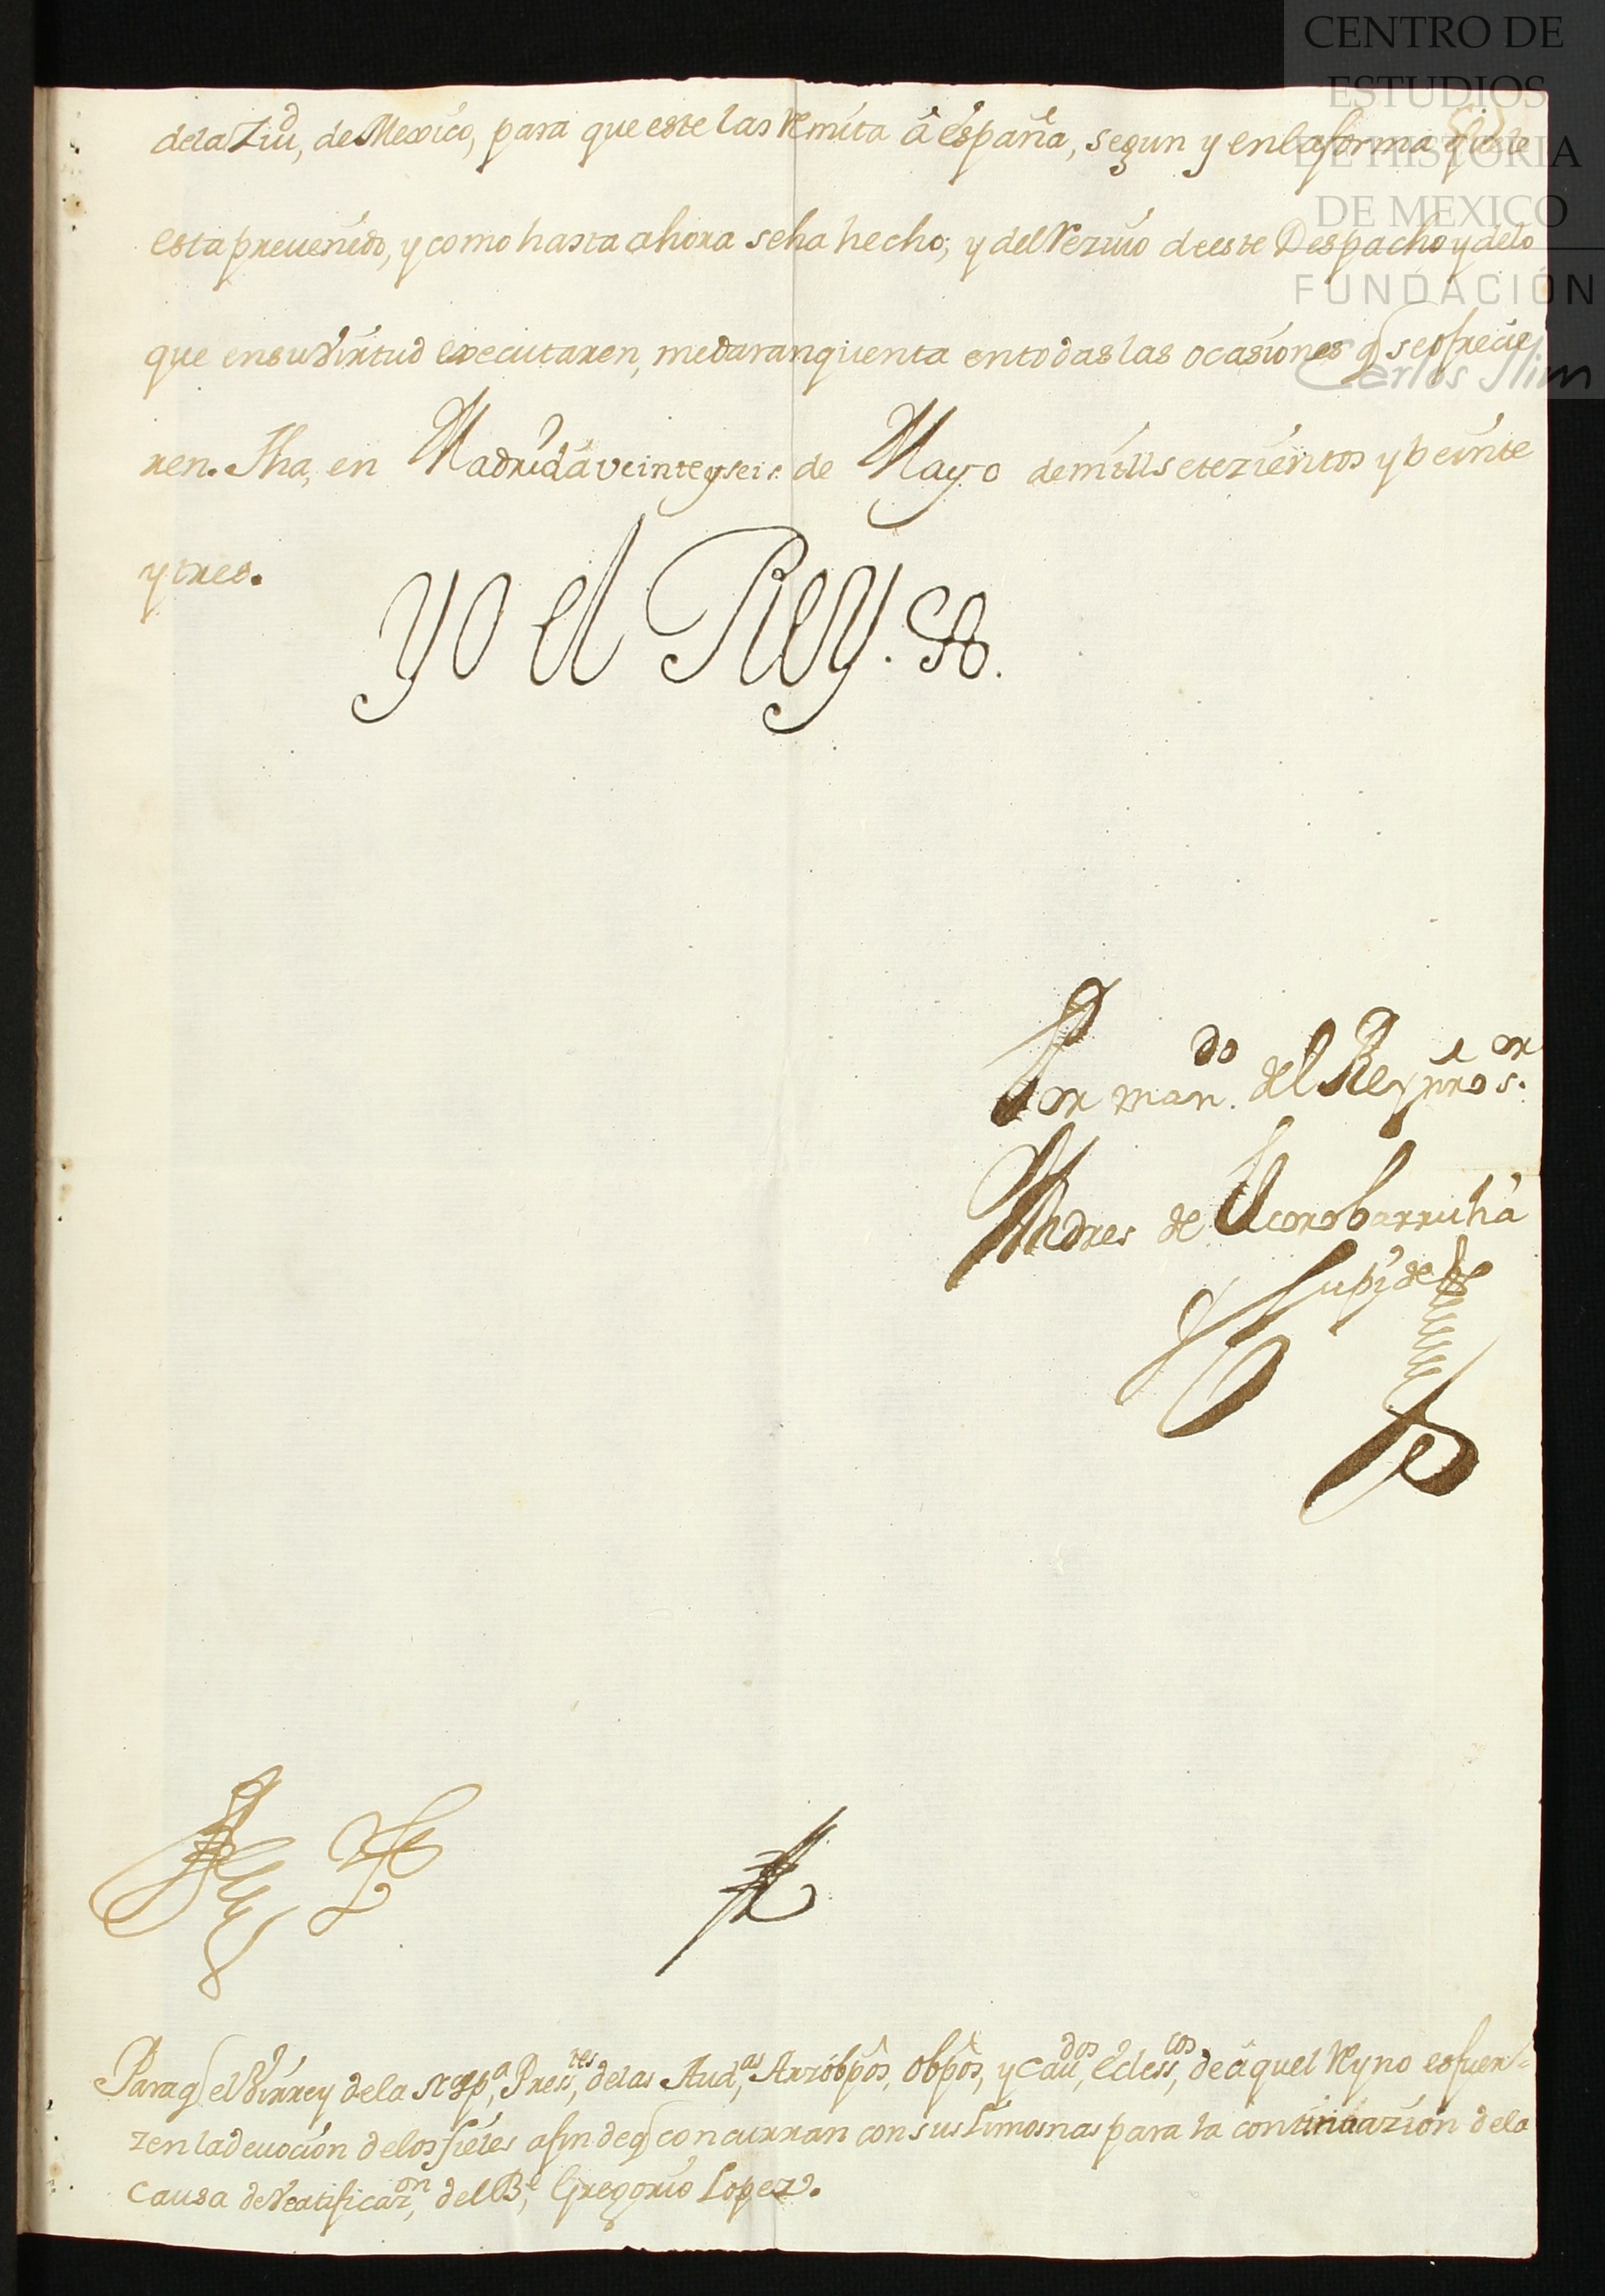 CENTRO DE
ESTUDIOS
DE HISTORIA
DE MEXICO
FUNDACIÓN
Carlos Slim
dela Ziu,^d de Mexico, para que este las Remita â España, segun y enlaforma q̃ este
esta preuenido, y como hasta ahora seha hecho; y del Rezivo deeste Despacho y delo
que ensu Virtud executaren, medaran quenta entodas las ocasiones q̃ se ofrecie
ren. Fha, en Madrid à veinte y seis de Mayo de mill setezientos y veinte
y tres.
Yo el Rey.
Por man.^do del Rey nro s.^or
Andres de Elcorobarrutia
Zupide
Para q̃ el Virrey dela N esp,^a Press,^tes delas Aud,^as Arzobp̂os, obp̂os, y Cau,^dos Ecless,^cos de aquel Reyno esfuer-
zen la deuocion delos fieles afin de q̃ concurran con sus limosnas para la continuazion dela
causa de Veatificaz,^on del B,^e Gregorio Lopez.